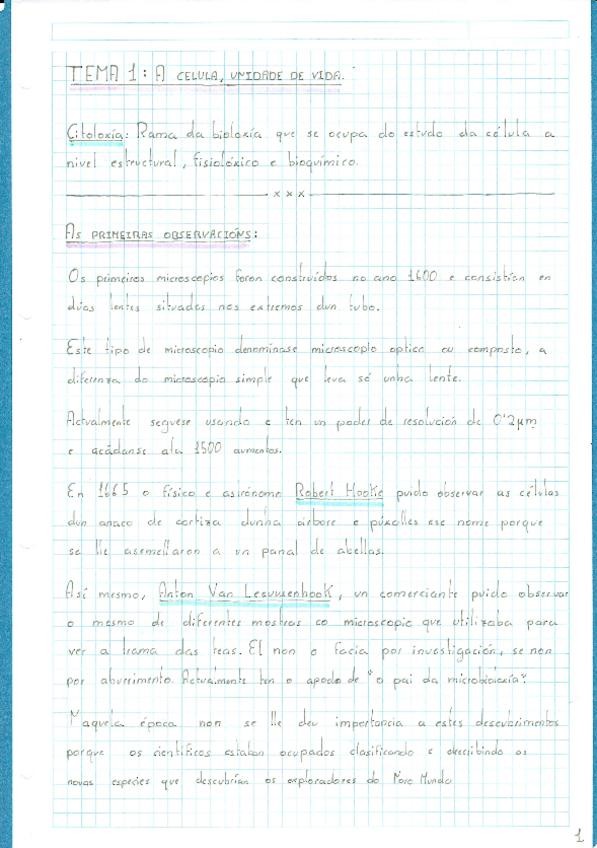 TEMA 1: A CELULA, UNIDADE DE VIDA.
Citoloxía: Rama da bioloxía que se ocupa do estudo da célula a
nivel estructural, fisiolóxico e bioquímico.
x x x
AS PRIMEIRAS OBSERVACIÓNS:
Os primeiros microscopios foron construídos no ano 1600 e consistían en
dúas lentes situadas nos extremos dun tubo.
Este tipo de microscopio denomínase microscopio optico ou composto, a
diferenza do microscopio simple que leva só unha lente.
Actualmente seguese usando e ten un poder de resolución de 0'2μm
e acádanse ata 1500 aumentos.
En 1665 o físico e astrónomo Robert Hooke puido observar as células
dun anaco de cortiza dunha árbore e púxolles ese nome porque
se lle asemellaron a un panal de abellas.
Así mesmo, Anton Van Leeuwenhook, un comerciante puido observar
o mesmo de diferentes mostras co microscopio que utilizaba para
ver a trama das teas. El non o facía por investigación, se non
por aburrimento. Actualmente ten o apodo de "o pai da microbioloxía".
Naquela época non se lle deu importancia a estes descubrimentos
porque os científicos estaban ocupados clasificando e describindo as
novas especies que descubrían os exploradores do Novo Mundo
1